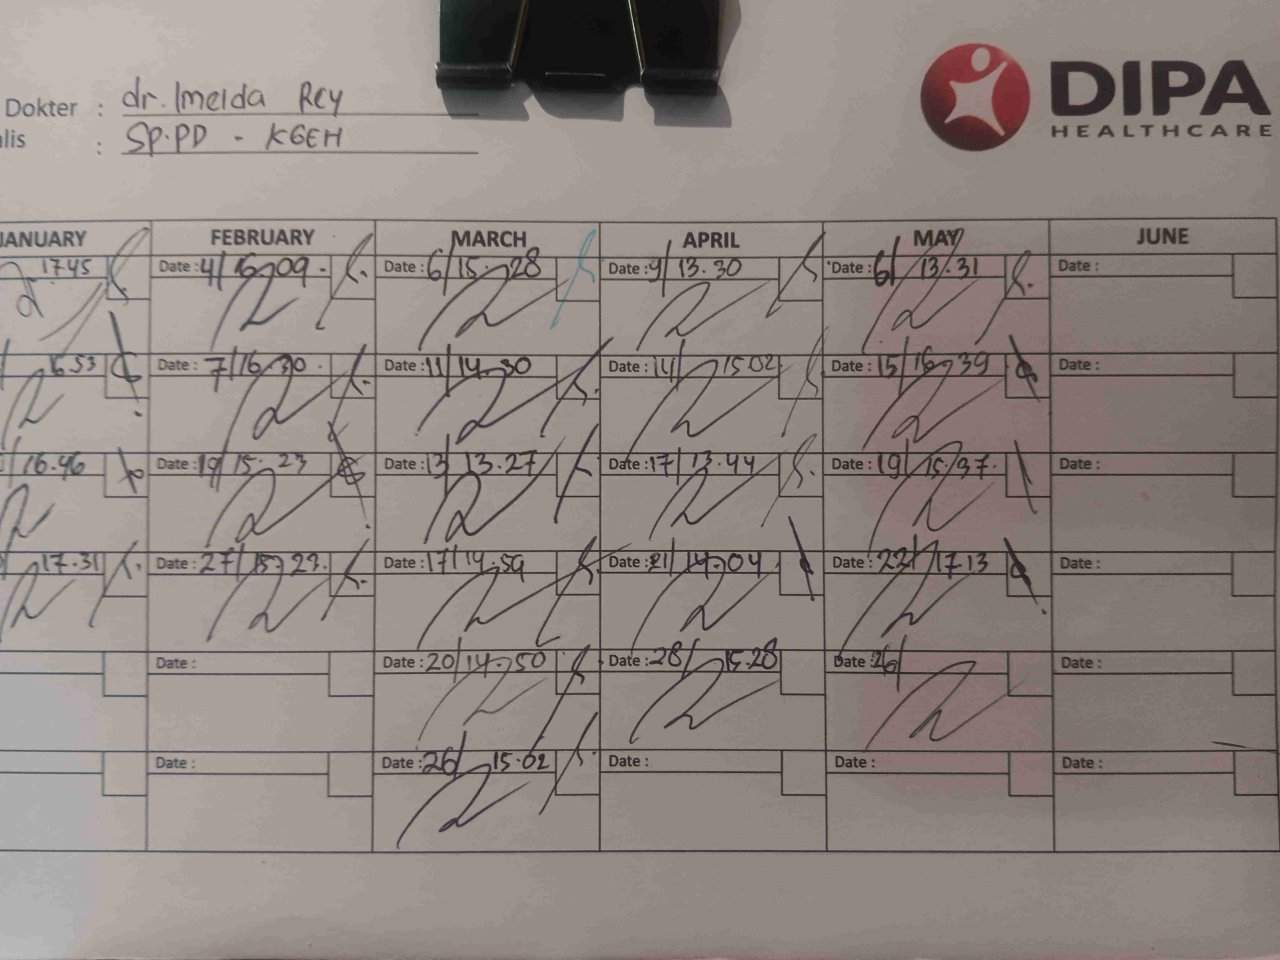 Dokter : dr. Imelda Rey
lis : SP.PD - KGEH
DIPA
HEALTHCARE
JANUARY FEBRUARY MARCH APRIL MAY JUNE
17.45 Date : 4/ 16.09 Date : 6/15.28 Date : 9/ 13.30 Date : 6/ 13.31 Date :
16.53 Date : 7/16.30 Date : 11/14.30 Date : 14/ 15.02 Date : 15/16.39 Date :
16.46 Date : 19/15.23 Date : 13/13.27 Date : 17/13.44 Date : 19/15.37 Date :
17.31 Date : 27/15.23 Date : 17/14.59 Date : 21/14.04 Date : 22/17.13 Date :
Date : Date : 20/14.50 Date : 28/ 15.28 Date : 26/ Date :
Date : Date : 26/ 15.02 Date : Date : Date :